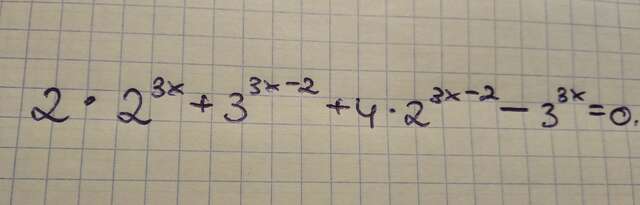 2 · 2^{3x} + 3^{3x-2} + 4 · 2^{3x-2} - 3^{3x} = 0.